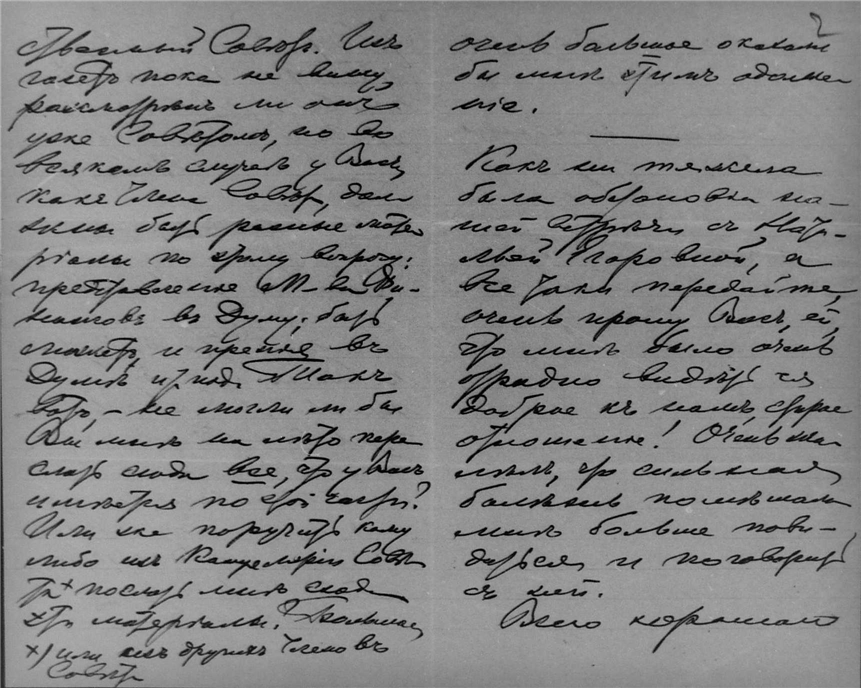 Государственный Советъ. Изъ
газетъ пока не вижу
разсмотренъ ли онъ
уже Советомъ, но во
всякомъ случаѣ у Васъ,
какъ Члена Совета, дол-
жны быть разные мате-
ріалы по этому вопросу:
представленіе М-ва Фи-
нансовъ въ Думу; быть
можетъ, и пренія въ
Думѣ и т. под. Такъ
вотъ, – не могли ли бы
Вы мнѣ на лѣто пере
слать сюда все, что у Васъ
имѣется по этой части?
Или же поручить кому
либо изъ Канцеляріи Совѣ
та ×) послать мнѣ сюда
эти материалы?
×) или изъ другихъ Членовъ
Совета
2
очень большое оказали
бы мнѣ этимъ одолже
ніе.
Какъ ни тяжела
была обстановка на-
шей встрѣчи съ Ната-
льей Егоровной, а
все таки передайте,
очень прошу Васъ, ей,
что мнѣ было очень
отрадно видѣть ея
доброе къ намъ, старое
отношеніе! Очень жа
лѣлъ, что сильная
болѣзнь помѣшала
мнѣ больше пови-
даться и поговорить
съ ней.
Всего хорошаго